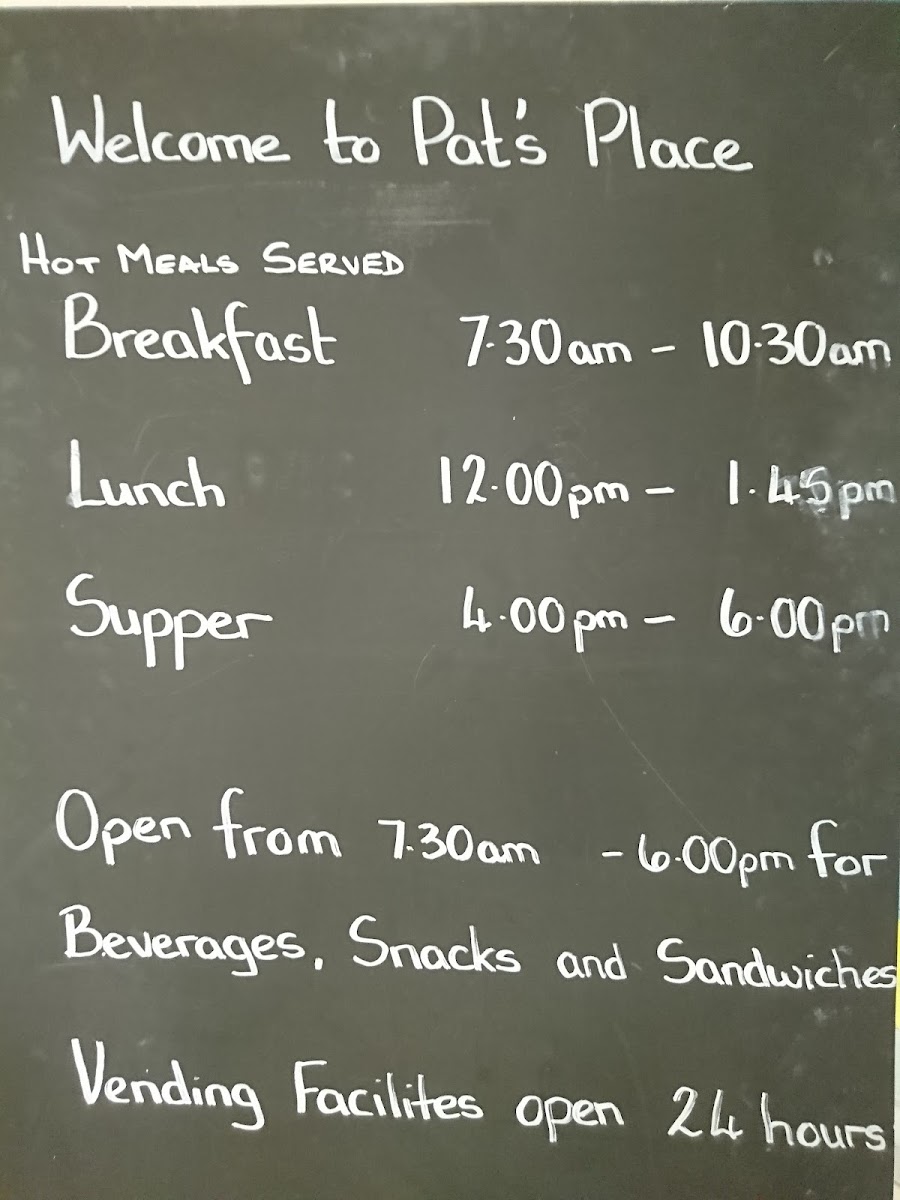 Welcome to Pat's Place
HOT MEALS SERVED
Breakfast 7.30am - 10.30am
Lunch 12.00pm - 1.45pm
Supper 4.00pm - 6.00pm
Open from 7.30am - 6.00pm for
Beverages, Snacks and Sandwiches
Vending Facilites open 24 hours